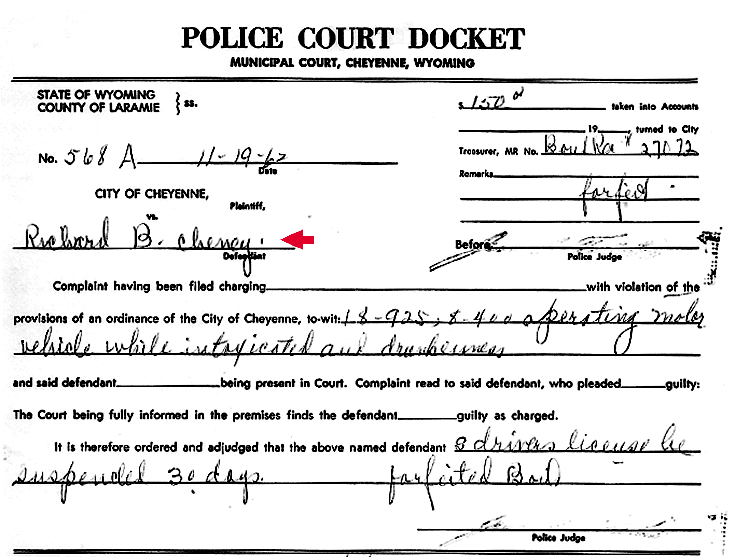 POLICE COURT DOCKET
MUNICIPAL COURT, CHEYENNE, WYOMING
STATE OF WYOMING
COUNTY OF LARAMIE } ss.
$ 150 taken into Accounts
19 , turned to City
No. 568 A 11-19-62
Date
Treasurer, MR No. Bond Rec # 27072
Remarks
forfeit
CITY OF CHEYENNE,
Plaintiff,
vs.
Richard B. Cheney.
Defendant
Before
Police Judge
Complaint having been filed charging with violation of the
provisions of an ordinance of the City of Cheyenne, to-wit: 18-925; 8-400 operating motor
vehicle while intoxicated and drunkenness
and said defendant being present in Court. Complaint read to said defendant, who pleaded guilty:
The Court being fully informed in the premises finds the defendant guilty as charged.
It is therefore ordered and adjudged that the above named defendant s drivers license be
suspended 30 days. forfeited Bond
Police Judge